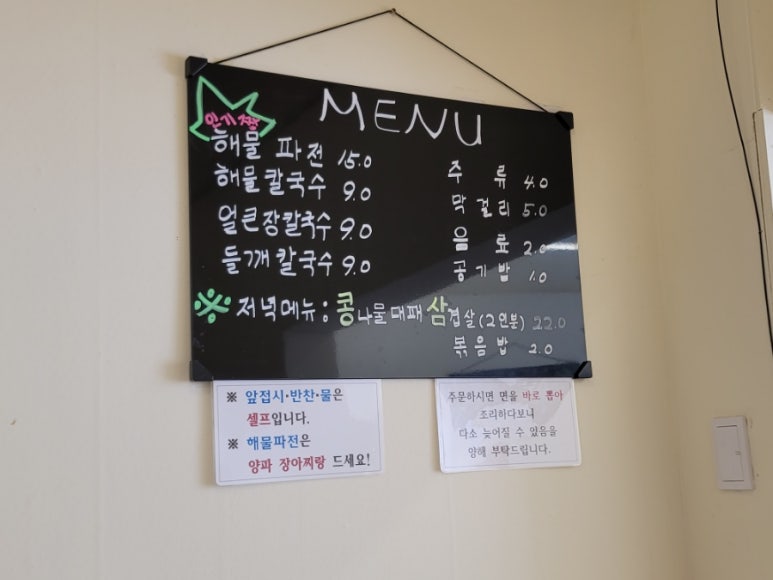 MENU
인기짱
해물 파전 15.0
해물칼국수 9.0
얼큰장칼국수 9.0
들깨칼국수 9.0
주 류 4.0
막걸리 5.0
음 료 2.0
공기밥 1.0
※ 저녁메뉴: 콩나물대패삼겹살(2인분) 22.0
볶음밥 2.0
※ 앞접시·반찬·물은
셀프입니다.
※ 해물파전은
양파 장아찌랑 드세요!
주문하시면 면을 바로 뽑아
조리하다보니
다소 늦어질 수 있음을
양해 부탁드립니다.